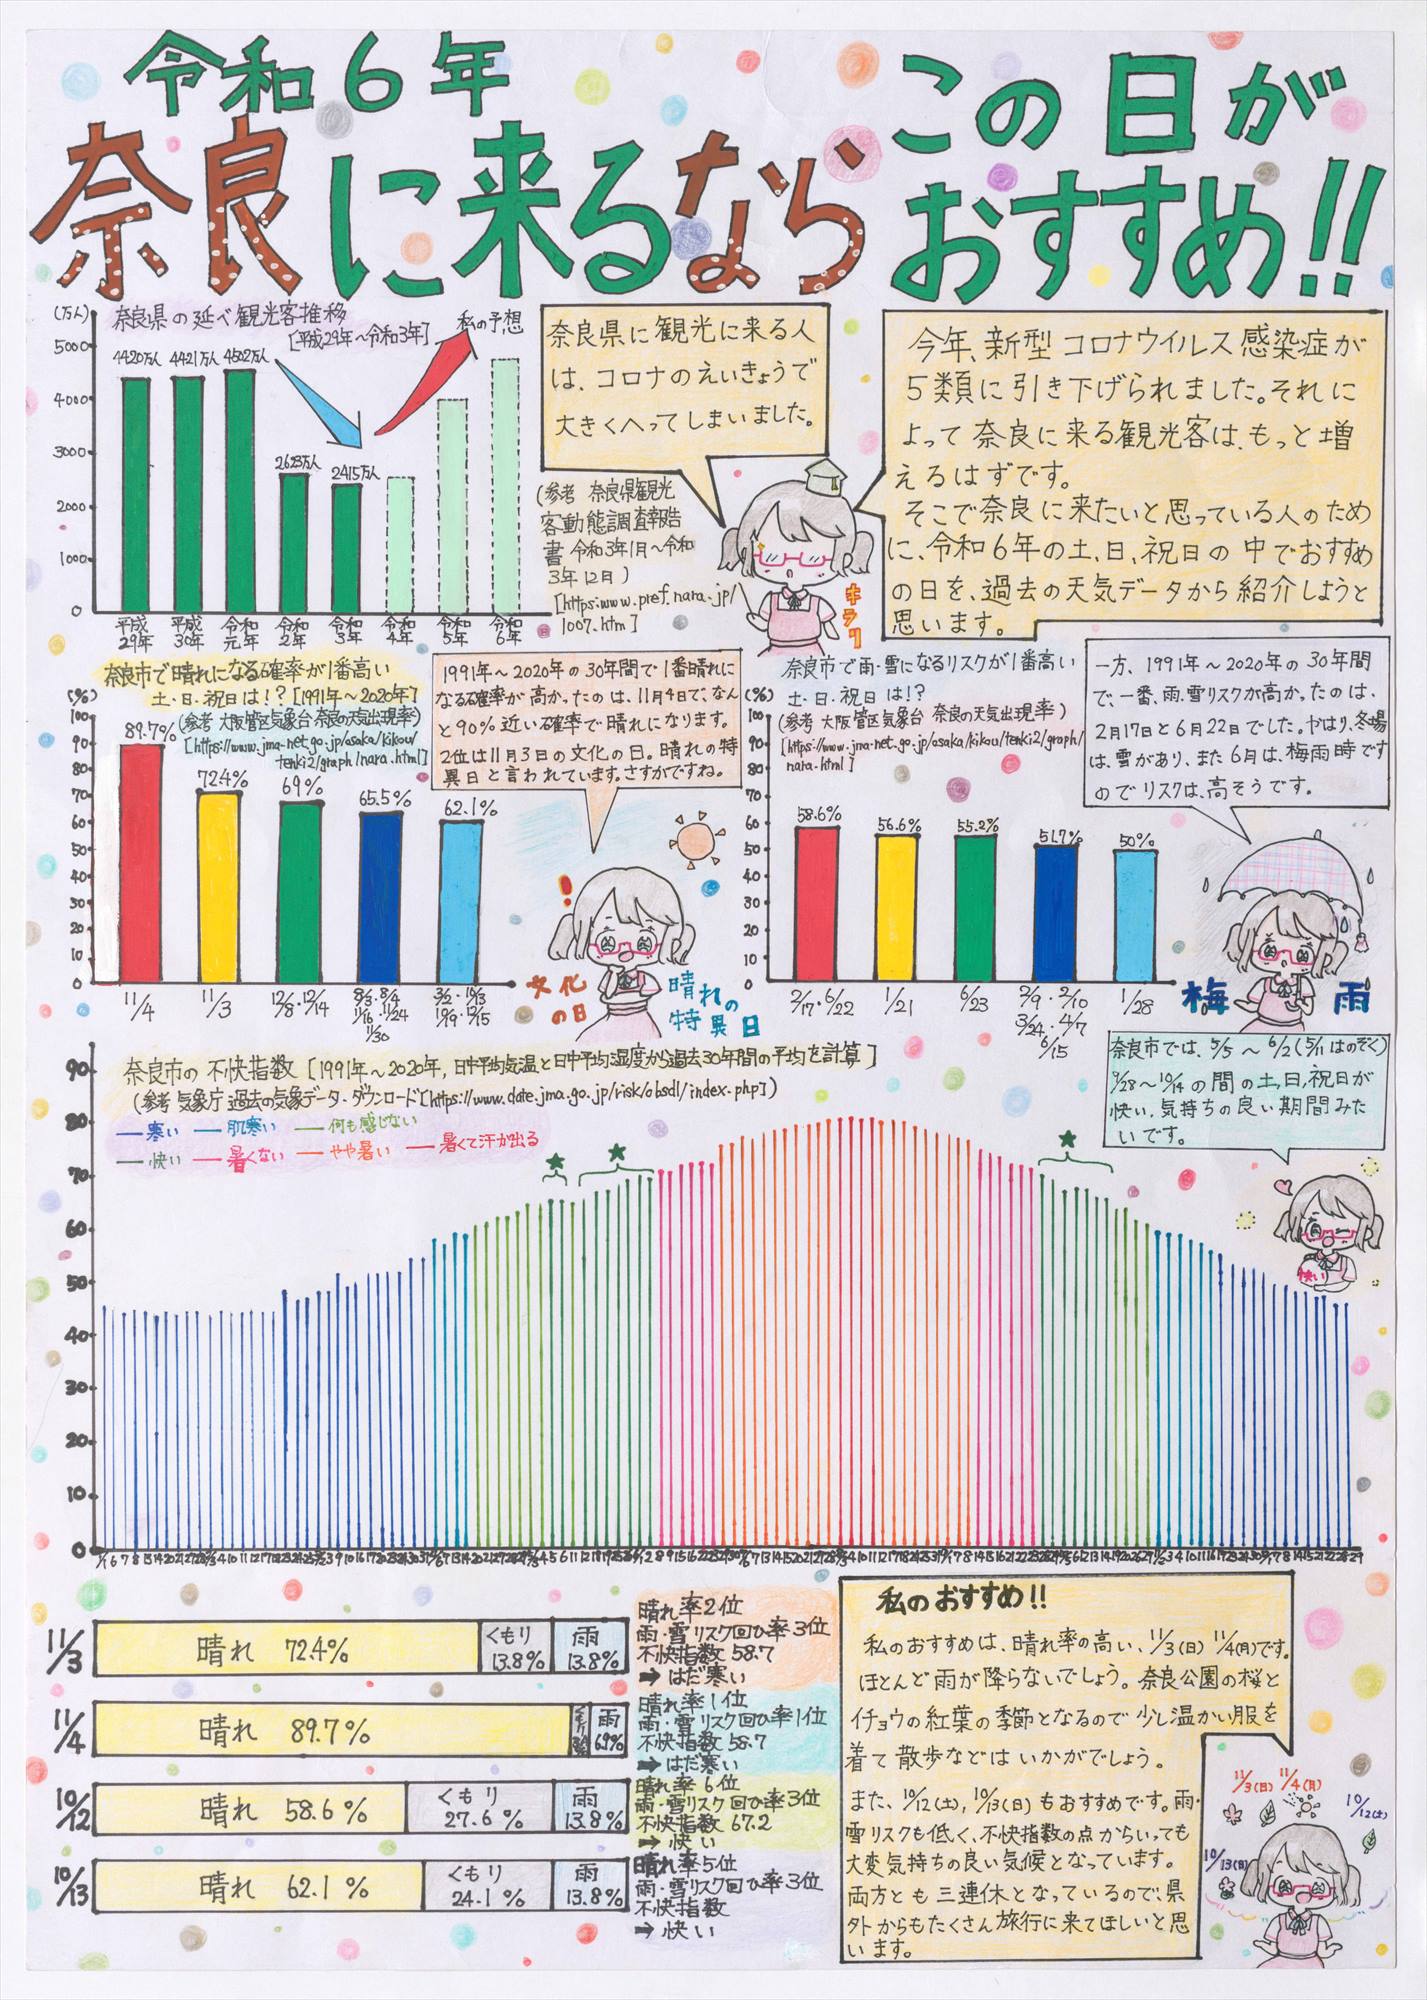 令和6年
この日が
奈良に来るなら
おすすめ!!
(万人)
奈良県の延べ観光客推移
[平成29年～令和3年]
私の予想
5000
4000
3000
2000
1000
0
4420万人 4421万人 4502万人
2623万人
2415万人
平成29年
平成30年
令和元年
令和2年
令和3年
令和4年
令和5年
令和6年
奈良県に観光に来る人
は、コロナのえいきょうで
大きくへってしまいました。
(参考 奈良県観光
客動態調査報告
書 令和3年1月～令和
3年12月)
[https:www.pref.nara.jp/
1007.htm]
キラリ
今年、新型コロナウイルス感染症が
5類に引き下げられました。それに
よって奈良に来る観光客は、もっと増
えるはずです。
そこで奈良に来たいと思っている人のため
に、令和6年の土、日、祝日の中でおすすめ
の日を、過去の天気データから紹介しようと
思います。
奈良市で晴れになる確率が1番高い
土・日・祝日は!? [1991年～2020年]
(参考 大阪管区気象台 奈良の天気出現率)
[https://www.jma-net.go.jp/osaka/kikou/
tenki2/graph/nara.html]
(%)
100
90
80
70
60
50
40
30
20
10
0
89.7%
72.4%
69%
65.5%
62.1%
11/4
11/3
12/8・12/14
8/3・8/4
11/16・11/24
11/30
3/2・10/13
10/19・12/15
1991年～2020年の30年間で1番晴れに
なる確率が高かったのは、11月4日で、なん
と90%近い確率で晴れになります。
2位は11月3日の文化の日。晴れの特
異日と言われています。さすがですね。
!
文化
の日
晴れの
特異日
奈良市で雨・雪になるリスクが1番高い
土・日・祝日は!?
(参考 大阪管区気象台 奈良の天気出現率)
[https://www.jma-net.go.jp/osaka/kikou/tenki2/graph/
nara.html]
(%)
100
90
80
70
60
50
40
30
20
10
0
58.6%
56.6%
55.2%
51.7%
50%
2/17・6/22
1/21
6/23
2/9・2/10
3/24・4/7
6/15
1/28
一方、1991年～2020年の30年間
で、一番、雨、雪リスクが高かったのは、
2月17日と6月22日でした。やはり、冬場
は、雪があり、また6月は、梅雨時です
のでリスクは、高そうです。
梅雨
奈良市の不快指数 [1991年～2020年, 日中平均気温と日中平均湿度から過去30年間の平均を計算]
(参考 気象庁 過去の気象データ・ダウンロード[https://www.date.jma.go.jp/risk/obsdl/index.php])
寒い 肌寒い 何も感じない
快い 暑くない やや暑い 暑くて汗が出る
90
80
70
60
50
40
30
20
10
0
奈良市では、5/5～6/2(5/11はのぞく)
9/28～10/14の間の土,日,祝日が
快い、気持ちの良い期間みた
いです。
快い
11/3
晴れ 72.4%
くもり 13.8%
雨 13.8%
晴れ率2位
雨・雪リスク回ひ率3位
不快指数58.7
➡はだ寒い
11/4
晴れ 89.7%
くもり
雨 6.9%
晴れ率1位
雨・雪リスク回ひ率1位
不快指数58.7
➡はだ寒い
10/12
晴れ 58.6%
くもり 27.6%
雨 13.8%
晴れ率6位
雨・雪リスク回ひ率3位
不快指数67.2
➡快い
10/13
晴れ 62.1%
くもり 24.1%
雨 13.8%
晴れ率5位
雨・雪リスク回ひ率3位
不快指数
➡快い
私のおすすめ!!
私のおすすめは、晴れ率の高い、11/3(日) 11/4(月)です。
ほとんど雨が降らないでしょう。奈良公園の桜と
イチョウの紅葉の季節となるので少し温かい服を
着て散歩などはいかがでしょう。
また、10/12(土), 10/13(日)もおすすめです。雨・
雪リスクも低く、不快指数の点からいっても
大変気持ちの良い気候となっています。
両方とも三連休となっているので、県
外からもたくさん旅行に来てほしいと思
います。
11/3(日) 11/4(月)
10/12(土)
10/13(日)